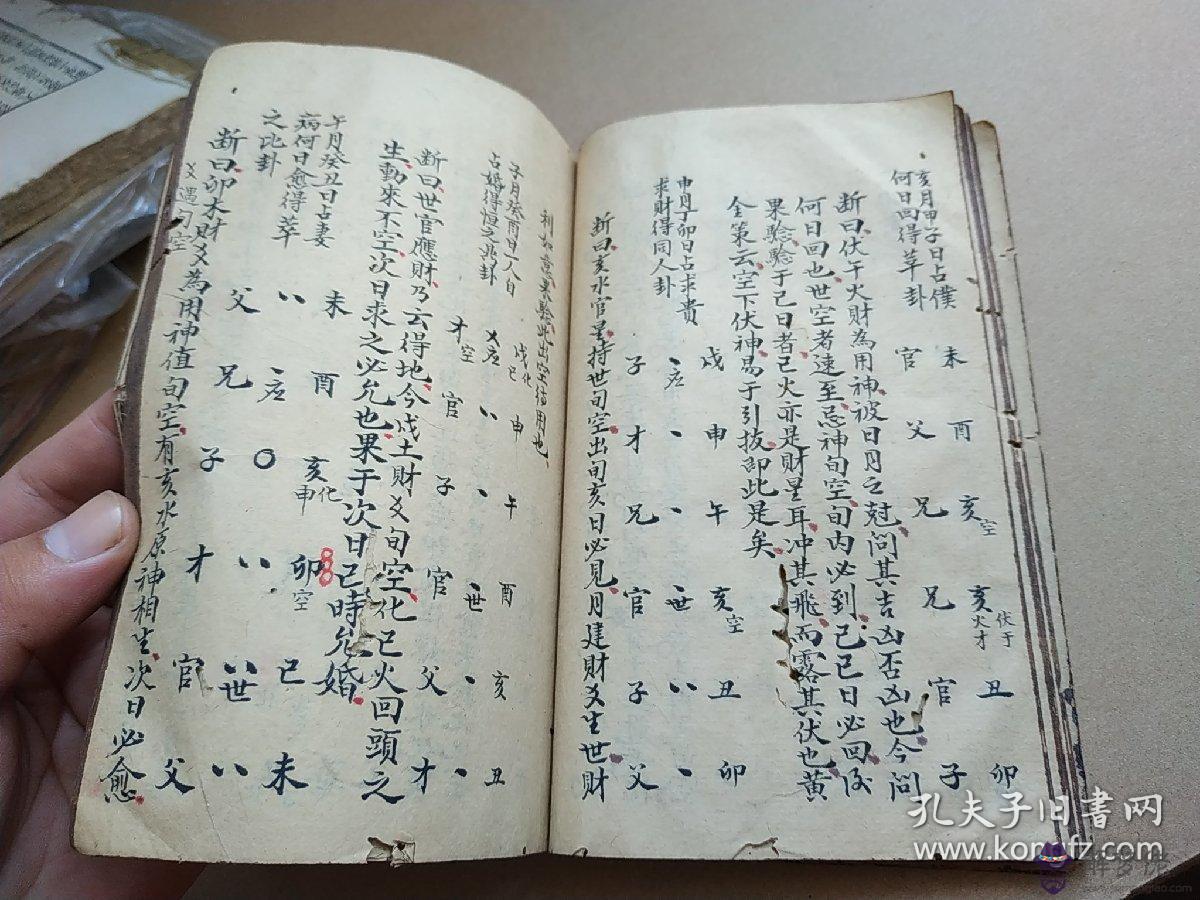 亥月甲子日占僕
何日回得革卦
未 酉 亥空 亥 丑 卯
伏于
火才
官 父 兄 兄 官 子
断曰伏于火財為用神被日月之尅问其吉凶否凶也今问
何日回也世空者速至忌神旬空旬内必到己巳日必回後
果騐騐于己日者己火亦是財星耳冲其飛而露其伏也黄
金策云空下伏神易于引拔即此是矣
申月丁卯日占求貴
求財得同人卦
戌 申 午 亥空 丑 卯
应 世
子 才 兄 官 子 父
断曰亥水官星持世旬空出旬亥日必見月建財爻生世財
利如意果驗此出空值用也
子月癸酉日一人自
占婚得恒之兆卦
戌化巳 申 午 酉 亥 丑
应 世
才空 官 子 官 父 才
断曰世官應財乃云得地今戌土財爻旬空化巳火回頭之
生動來不空次日求之必允也果于次日己時允婚
午月癸丑日占妻
病何日愈得萃
之比卦
未 酉 亥化申 卯空 巳 未
应 世
父 兄 子 才 官 父
断曰卯木財爻為用神值旬空有亥水原神相生次日必愈
爻遇旬空
孔夫子旧书网
www.kongfz.com